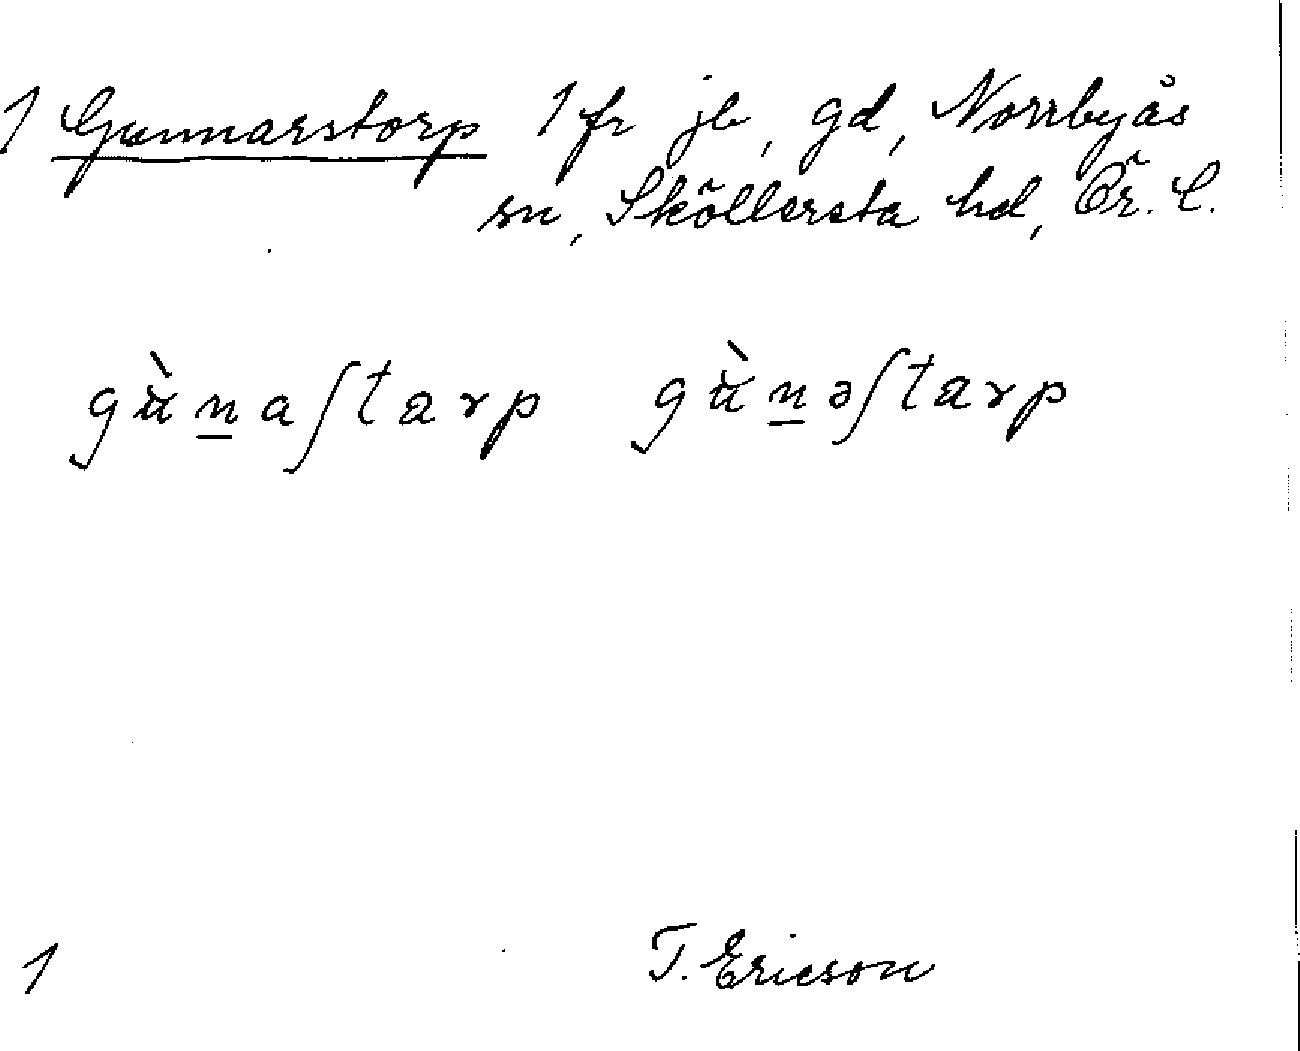 1 Gunnarstorp 1 fr jb, gd, Norrbyås
sn, Sköllersta hd, Ör. L.
gùn̲aʃtarp gùn̲əʃtarp
1 T. Ericson